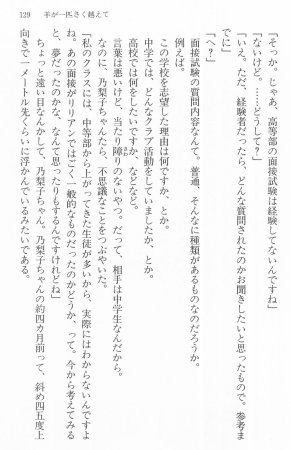 129　羊が一匹さく越えて
「そっか。じゃあ、高等部の面接試験は経験してないんですね」
「ないけど。……どうして？」
「いえ。ただ、経験者だったら、どんな質問されたのかお聞きしたいと思ったもので。参考ま
でに」
「へ？」
面接試験の質問内容なんて。普通、そんなに種類があるものなのだろうか。
例えば。
この学校を志望した理由は何ですか、とか。
中学では、どんなクラブ活動をしていましたか、とか。
高校では何をしたいですか、などなど。
言葉は悪いけど、当たり障りのないやつ。だって、相手は中学生なんだから。
なのに、乃梨子ちゃんたら、不思議なことをつぶやいた。
「私のクラスには、中等部から上がってきた生徒が多いから、実際にはわからないんですよ
ね。あの面接がリリアンではごく一般的なものだったのかどうか、って。今から考えてみる
と、夢だったのかな、なんて思ったりもするんですけれどね」
ちょっと遠い目なんかして、乃梨子ちゃん。乃梨子ちゃんの約四カ月前って、斜め四五度上
向きで一メートル先くらいに浮かんでいるみたいである。